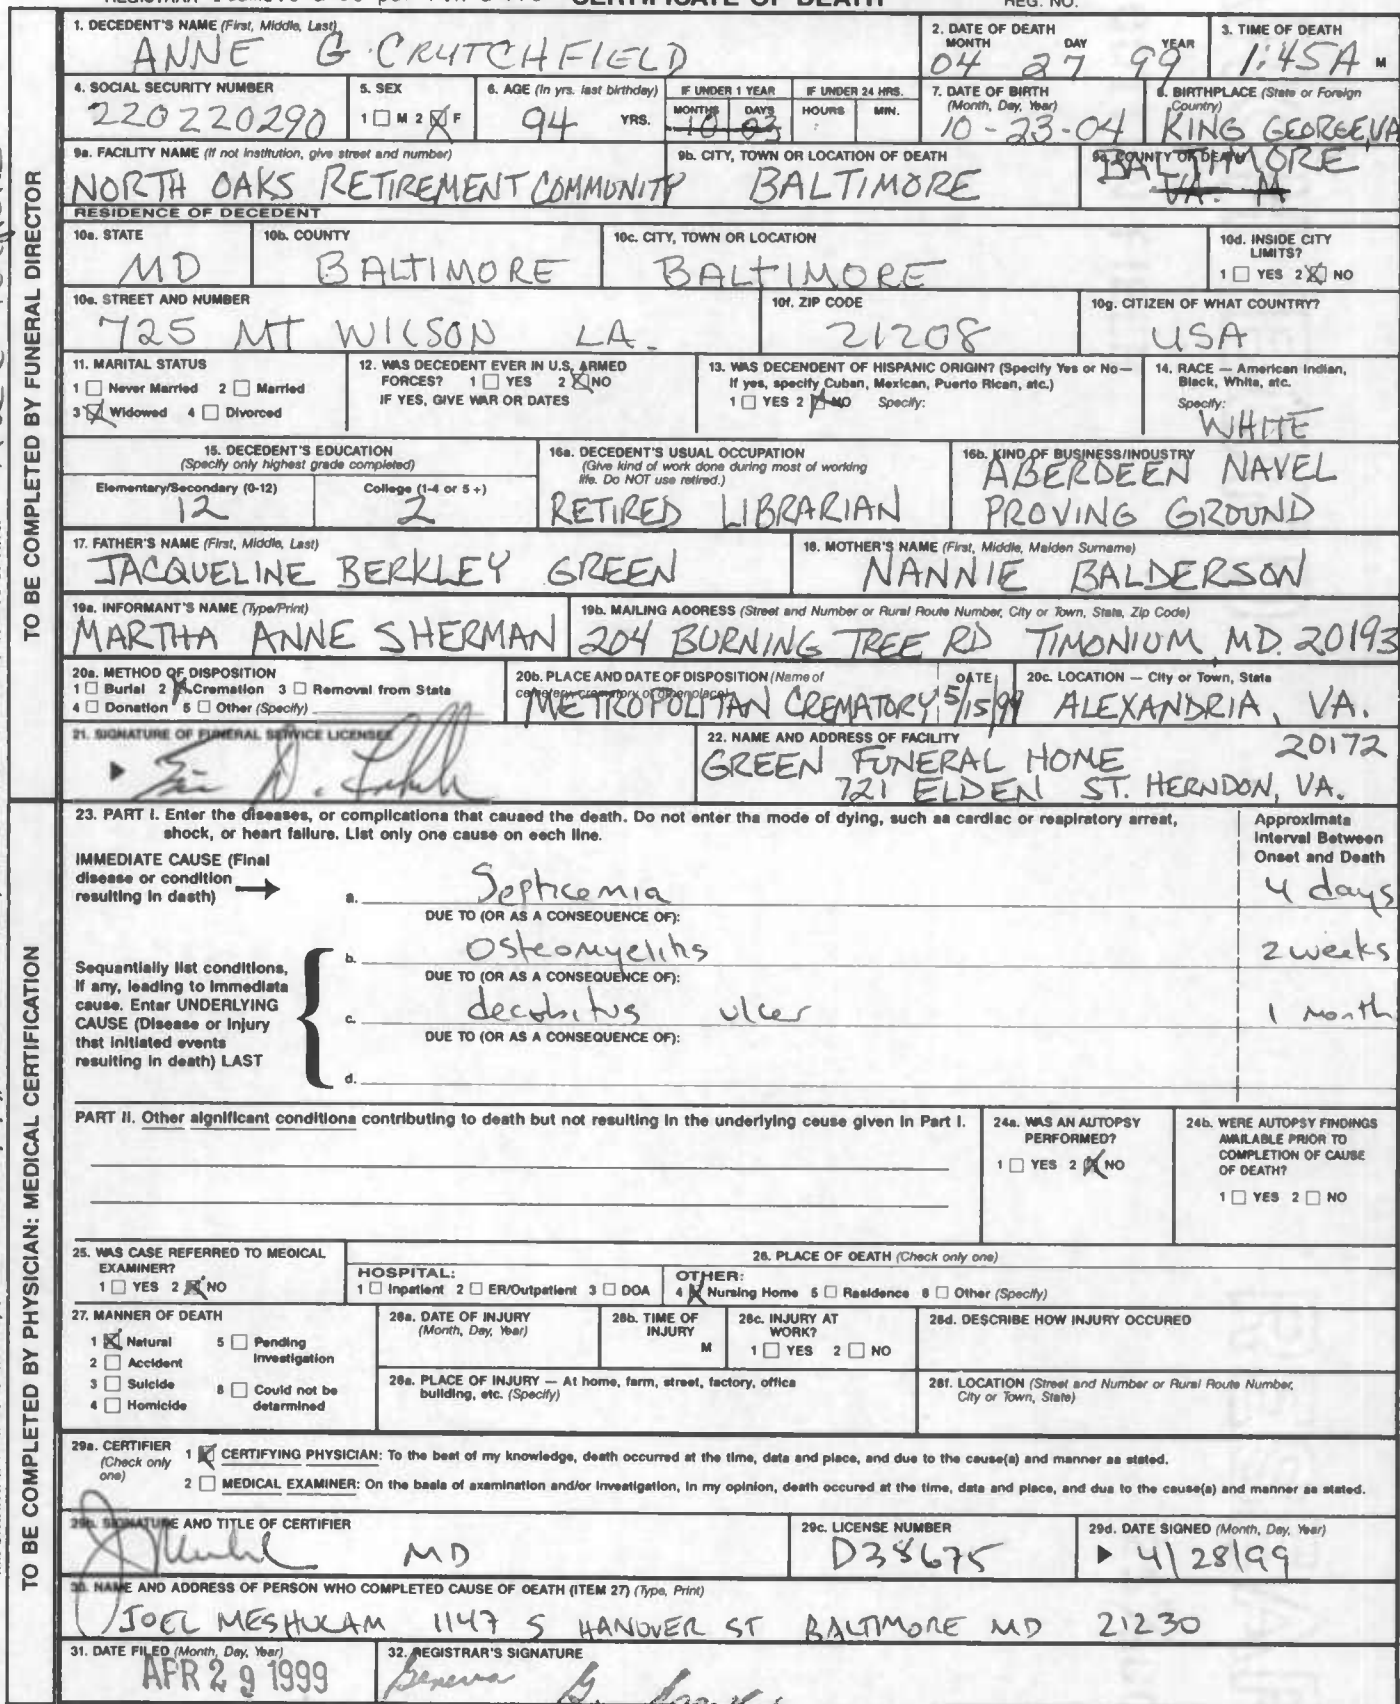 CERTIFICATE OF DEATH
REGISTRAR
REG. NO.
TO BE COMPLETED BY FUNERAL DIRECTOR
1. DECEDENT'S NAME (First, Middle, Last)
ANNE G. CRUTCHFIELD
2. DATE OF DEATH
MONTH DAY YEAR
04 27 99
3. TIME OF DEATH
1:45A M
4. SOCIAL SECURITY NUMBER
220220290
5. SEX
1 M 2 F
6. AGE (In yrs. last birthday)
94 YRS.
IF UNDER 1 YEAR
MONTHS DAYS
10 23
IF UNDER 24 HRS.
HOURS MIN.
7. DATE OF BIRTH
(Month, Day, Year)
10-23-04
8. BIRTHPLACE (State or Foreign
Country)
KING GEORGE, VA
9a. FACILITY NAME (If not institution, give street and number)
NORTH OAKS RETIREMENT COMMUNITY
9b. CITY, TOWN OR LOCATION OF DEATH
BALTIMORE
9c. COUNTY OF DEATH
BALTIMORE
VA. M
RESIDENCE OF DECEDENT
10a. STATE
MD
10b. COUNTY
BALTIMORE
10c. CITY, TOWN OR LOCATION
BALTIMORE
10d. INSIDE CITY
LIMITS?
1 YES 2 NO
10e. STREET AND NUMBER
725 MT WILSON LA.
10f. ZIP CODE
21208
10g. CITIZEN OF WHAT COUNTRY?
USA
11. MARITAL STATUS
1 Never Married 2 Married
3 Widowed 4 Divorced
12. WAS DECEDENT EVER IN U.S. ARMED
FORCES? 1 YES 2 NO
IF YES, GIVE WAR OR DATES
13. WAS DECENDENT OF HISPANIC ORIGIN? (Specify Yes or No—
If yes, specify Cuban, Mexican, Puerto Rican, etc.)
1 YES 2 NO Specify:
14. RACE — American Indian,
Black, White, etc.
Specify:
WHITE
15. DECEDENT'S EDUCATION
(Specify only highest grade completed)
Elementary/Secondary (0-12) College (1-4 or 5+)
12 2
16a. DECEDENT'S USUAL OCCUPATION
(Give kind of work done during most of working
life. Do NOT use retired.)
RETIRED LIBRARIAN
16b. KIND OF BUSINESS/INDUSTRY
ABERDEEN NAVEL
PROVING GROUND
17. FATHER'S NAME (First, Middle, Last)
JACQUELINE BERKLEY GREEN
18. MOTHER'S NAME (First, Middle, Maiden Surname)
NANNIE BALDERSON
19a. INFORMANT'S NAME (Type/Print)
MARTHA ANNE SHERMAN
19b. MAILING ADDRESS (Street and Number or Rural Route Number, City or Town, State, Zip Code)
204 BURNING TREE RD TIMONIUM, MD. 20193
20a. METHOD OF DISPOSITION
1 Burial 2 Cremation 3 Removal from State
4 Donation 5 Other (Specify)
20b. PLACE AND DATE OF DISPOSITION (Name of
cemetery, crematory or other place) DATE
METROPOLITAN CREMATORY 5/15/99
20c. LOCATION — City or Town, State
ALEXANDRIA, VA.
21. SIGNATURE OF FUNERAL SERVICE LICENSEE
22. NAME AND ADDRESS OF FACILITY
GREEN FUNERAL HOME 20172
721 ELDEN ST. HERNDON, VA.
TO BE COMPLETED BY PHYSICIAN: MEDICAL CERTIFICATION
23. PART I. Enter the diseases, or complications that caused the death. Do not enter the mode of dying, such as cardiac or respiratory arrest,
shock, or heart failure. List only one cause on each line.
Approximate
Interval Between
Onset and Death
IMMEDIATE CAUSE (Final
disease or condition
resulting in death)
a. Septicemia 4 days
DUE TO (OR AS A CONSEQUENCE OF):
b. Osteomyelitis 2 weeks
DUE TO (OR AS A CONSEQUENCE OF):
c. decubitus ulcer 1 month
DUE TO (OR AS A CONSEQUENCE OF):
d.
Sequentially list conditions,
if any, leading to immediate
cause. Enter UNDERLYING
CAUSE (Disease or injury
that initiated events
resulting in death) LAST
PART II. Other significant conditions contributing to death but not resulting in the underlying cause given in Part I.
24a. WAS AN AUTOPSY
PERFORMED?
1 YES 2 NO
24b. WERE AUTOPSY FINDINGS
AVAILABLE PRIOR TO
COMPLETION OF CAUSE
OF DEATH?
1 YES 2 NO
25. WAS CASE REFERRED TO MEDICAL
EXAMINER?
1 YES 2 NO
26. PLACE OF DEATH (Check only one)
HOSPITAL:
1 Inpatient 2 ER/Outpatient 3 DOA
OTHER:
4 Nursing Home 5 Residence 6 Other (Specify)
27. MANNER OF DEATH
1 Natural 5 Pending
Investigation
2 Accident
3 Suicide 6 Could not be
determined
4 Homicide
28a. DATE OF INJURY
(Month, Day, Year)
28b. TIME OF
INJURY
M
28c. INJURY AT
WORK?
1 YES 2 NO
28d. DESCRIBE HOW INJURY OCCURED
28e. PLACE OF INJURY — At home, farm, street, factory, office
building, etc. (Specify)
28f. LOCATION (Street and Number or Rural Route Number,
City or Town, State)
29a. CERTIFIER
(Check only
one)
1 CERTIFYING PHYSICIAN: To the best of my knowledge, death occurred at the time, date and place, and due to the cause(s) and manner as stated.
2 MEDICAL EXAMINER: On the basis of examination and/or investigation, in my opinion, death occured at the time, date and place, and due to the cause(s) and manner as stated.
29b. SIGNATURE AND TITLE OF CERTIFIER
MD
29c. LICENSE NUMBER
D38675
29d. DATE SIGNED (Month, Day, Year)
4/28/99
30. NAME AND ADDRESS OF PERSON WHO COMPLETED CAUSE OF DEATH (ITEM 27) (Type, Print)
JOEL MESHULAM 1147 S HANOVER ST BALTIMORE MD 21230
31. DATE FILED (Month, Day, Year)
APR 29 1999
32. REGISTRAR'S SIGNATURE
Geneva